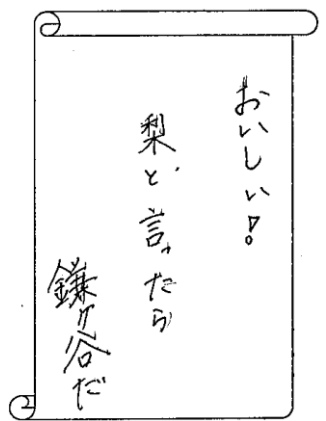 おいしい!
梨と言ったら
鎌ケ谷だ